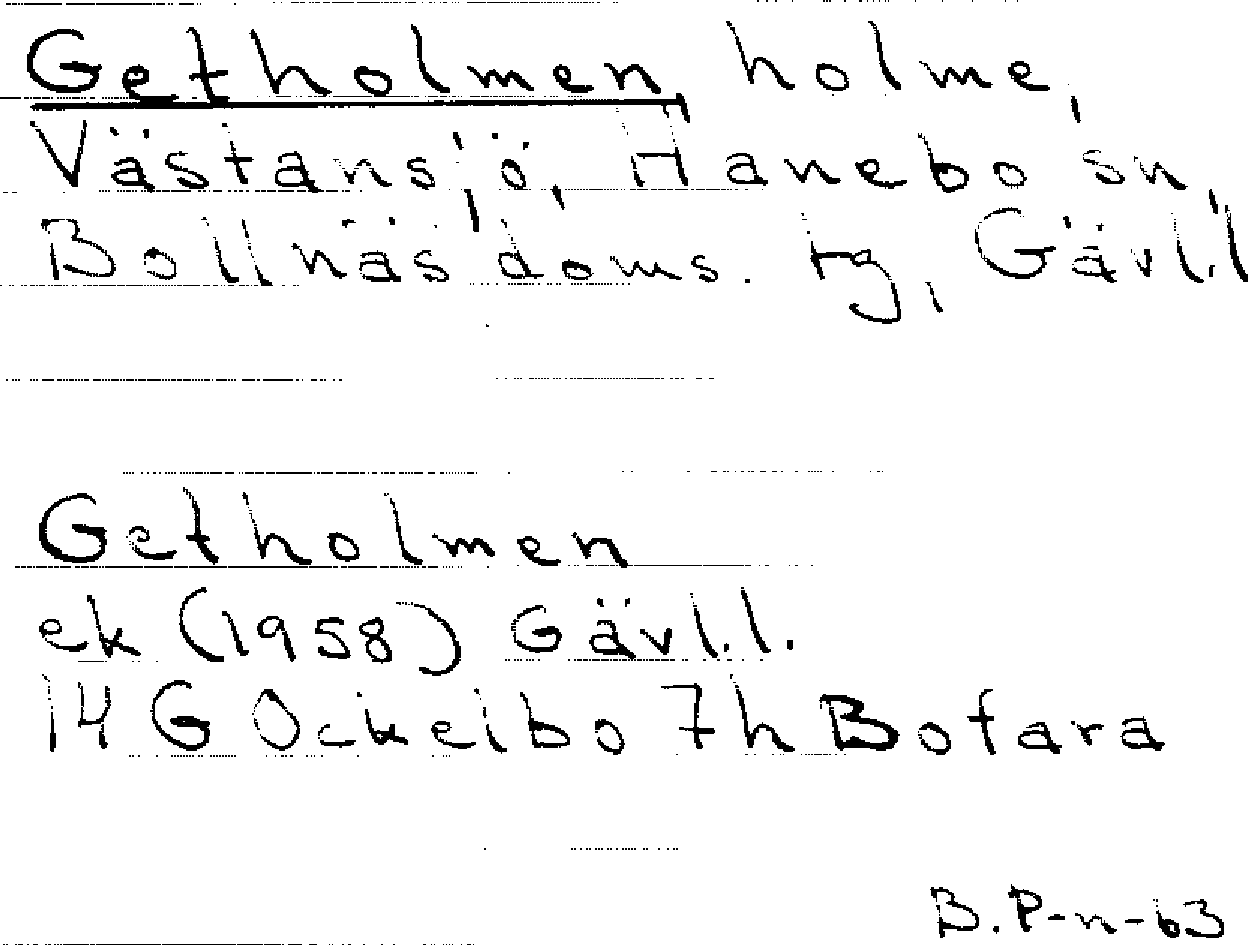 Getholmen, holme,
Västansjö, Hanebo sn,
Bollnäs doms. tg, Gävl.l
Getholmen
ek (1958) Gävl.l.
14 G Ockelbo 7h Bofara
B.P-n-63